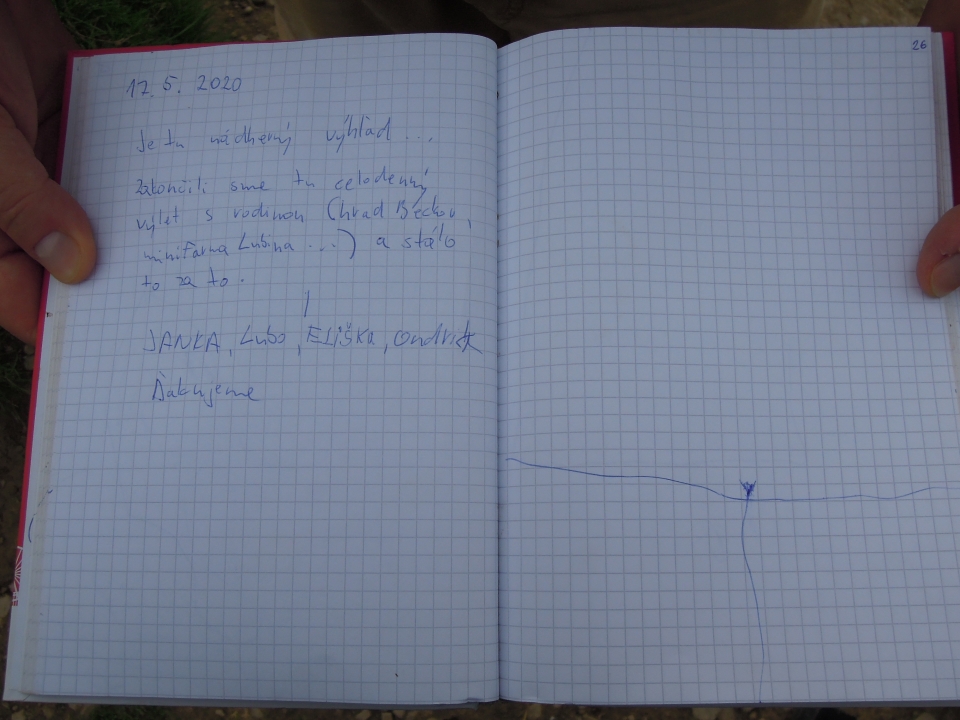 17. 5. 2020
Je tu nádherný výhľad ...
Zakončili sme tu celodenný
výlet s rodinou (hrad Beckov,
minifarma Lubina ...) a stálo
to za to.
JANKA, Ľubo, ELIŠKA, Ondrík
Ďakujeme
26